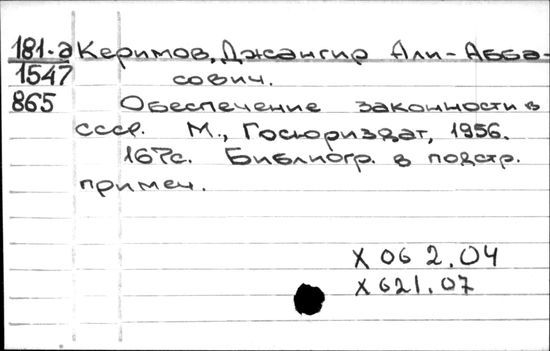 181-а Керимов, Джангир Али-Абба-
1547 сович.
865 Обеспечение законности в
СССР. М., Госюриздат, 1956.
167с. Библиогр. в подстр.
примеч.
X 06 2.04
X 621.07